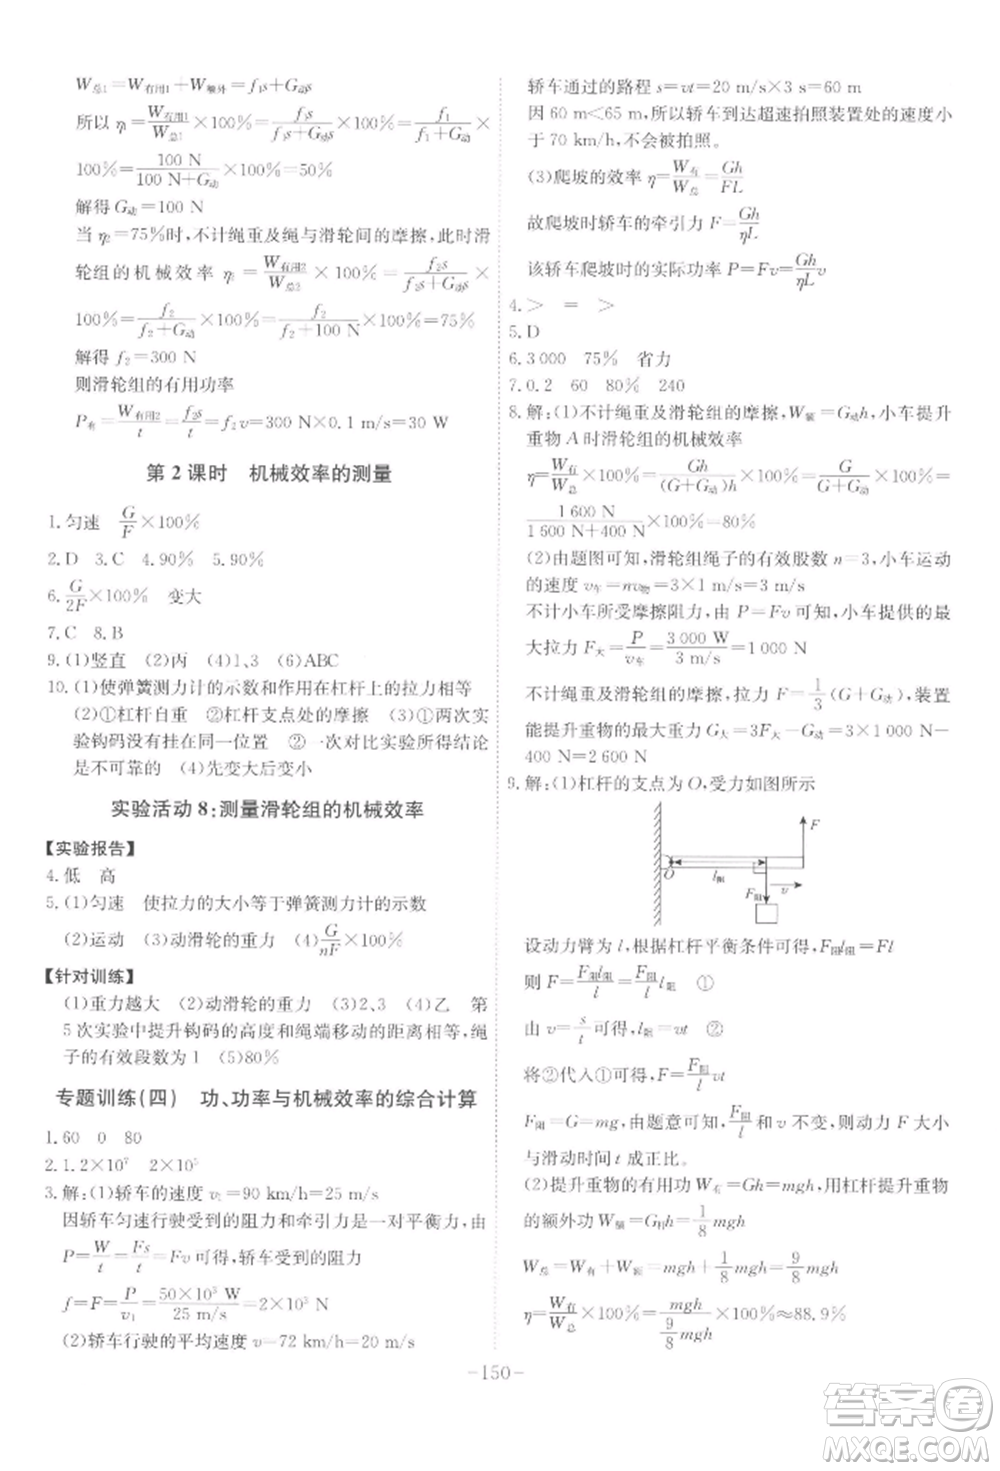 W总1=W有用1+W额外=f₁s+G动s
所以 η₁=W有用1/W总1×100%=f₁s/(f₁s+G动s)×100%=f₁/(f₁+G动)×
100%=100 N/(100 N+G动)×100%=50%
解得 G动=100 N
当 η₂=75%时,不计绳重及绳与滑轮间的摩擦,此时滑
轮组的机械效率 η₂=W有用2/W总2×100%=f₂s/(f₂s+G动s)×
100%=f₂/(f₂+G动)×100%=f₂/(f₂+100 N)×100%=75%
解得 f₂=300 N
则滑轮组的有用功率
P有=W有用2/t=f₂s/t=f₂v=300 N×0.1 m/s=30 W
第 2 课时 机械效率的测量
1.匀速 G/F×100%
2.D 3.C 4.90% 5.90%
6.G/2F×100% 变大
7.C 8.B
9.(1)竖直 (2)丙 (4)1、3 (6)ABC
10.(1)使弹簧测力计的示数和作用在杠杆上的拉力相等
(2)①杠杆自重 ②杠杆支点处的摩擦 (3)①两次实
验钩码没有挂在同一位置 ②一次对比实验所得结论
是不可靠的 (4)先变大后变小
实验活动 8:测量滑轮组的机械效率
【实验报告】
4.低 高
5.(1)匀速 使拉力的大小等于弹簧测力计的示数
(2)运动 (3)动滑轮的重力 (4)G/nF×100%
【针对训练】
(1)重力越大 (2)动滑轮的重力 (3)2、3 (4)乙 第
5 次实验中提升钩码的高度和绳端移动的距离相等,绳
子的有效段数为 1 (5)80%
专题训练(四) 功、功率与机械效率的综合计算
1.60 0 80
2.1.2×10⁷ 2×10⁵
3.解:(1)轿车的速度 v₁=90 km/h=25 m/s
因轿车匀速行驶受到的阻力和牵引力是一对平衡力,由
P=W/t=Fs/t=Fv 可得,轿车受到的阻力
f=F=P/v₁=50×10³ W/25 m/s=2×10³ N
(2)轿车行驶的平均速度 v=72 km/h=20 m/s
轿车通过的路程 s=vt=20 m/s×3 s=60 m
因 60 m<65 m,所以轿车到达超速拍照装置处的速度小
于 70 km/h,不会被拍照。
(3)爬坡的效率 η=W有/W总=Gh/FL
故爬坡时轿车的牵引力 F=Gh/ηL
该轿车爬坡时的实际功率 P=Fv=Gh/ηL v
4.> = >
5.D
6.3 000 75% 省力
7.0.2 60 80% 240
8.解:(1)不计绳重及滑轮组的摩擦,W额=G动h,小车提升
重物 A 时滑轮组的机械效率
η=W有/W总×100%=Gh/(G+G动)h×100%=G/(G+G动)×100%=
1 600 N/(1 600 N+400 N)×100%=80%
(2)由题图可知,滑轮组绳子的有效股数 n=3,小车运动
的速度 v车=nv物=3×1 m/s=3 m/s
不计小车所受摩擦阻力,由 P=Fv 可知,小车提供的最
大拉力 F大=P/v车=3 000 W/3 m/s=1 000 N
不计绳重及滑轮组的摩擦,拉力 F=1/3(G+G动),装置
能提升重物的最大重力 G大=3F大-G动=3×1 000 N-
400 N=2 600 N
9.解:(1)杠杆的支点为 O,受力如图所示
F
O
l阻
F阻
v
设动力臂为 l,根据杠杆平衡条件可得,F阻l阻=Fl
则 F=F阻l阻/l=F阻/l l阻 ①
由 v=s/t可得,l阻=vt ②
将②代入①可得,F=F阻/l vt
F阻=G=mg,由题意可知,F阻/l和 v 不变,所以动力 F 大小
与滑动时间 t 成正比。
(2)提升重物的有用功 W有=Gh=mgh,用杠杆提升重物
的额外功 W额=G杆h=1/8 mgh
W总=W有+W额=mgh+1/8 mgh=9/8 mgh
η=W有/W总×100%=mgh/(9/8 mgh)×100%≈88.9%
-150-
答案卷
MXQE.COM